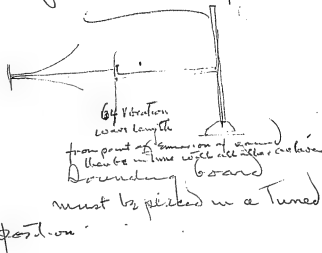 64 Vibration
wave Length
from point of Emission of sound
there be in tune with all other octaves
Sounding board
must be placed in a Tuned
position